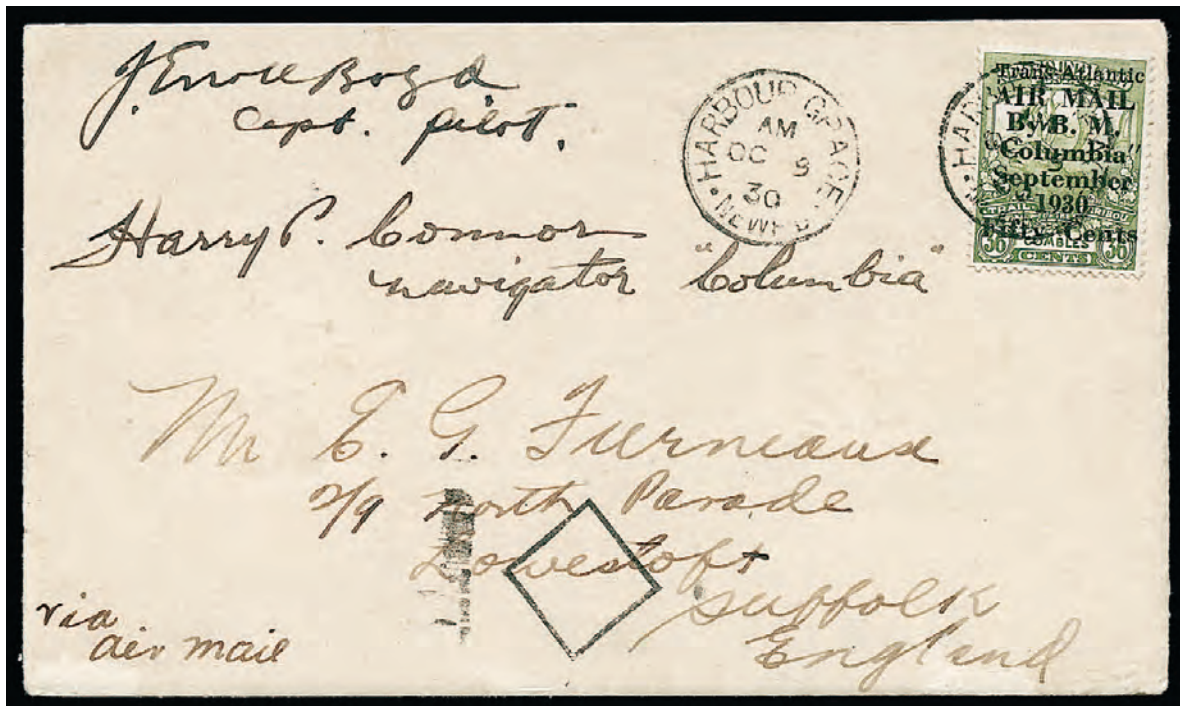 J. Erroll Boyd
Capt. Pilot.
Harry P. Connor
navigator "Columbia"
HARBOUR GRACE
AM
OC 8
30
NEWF'D
Trans-Atlantic
AIR MAIL
By B. M.
"Columbia"
September
1930
Fifty Cents
TRAIL CARIBOU
36 36
CENTS
Mr E. G. Furneaux
2/9 North Parade
Lowestoft
Suffolk
England
via
air mail